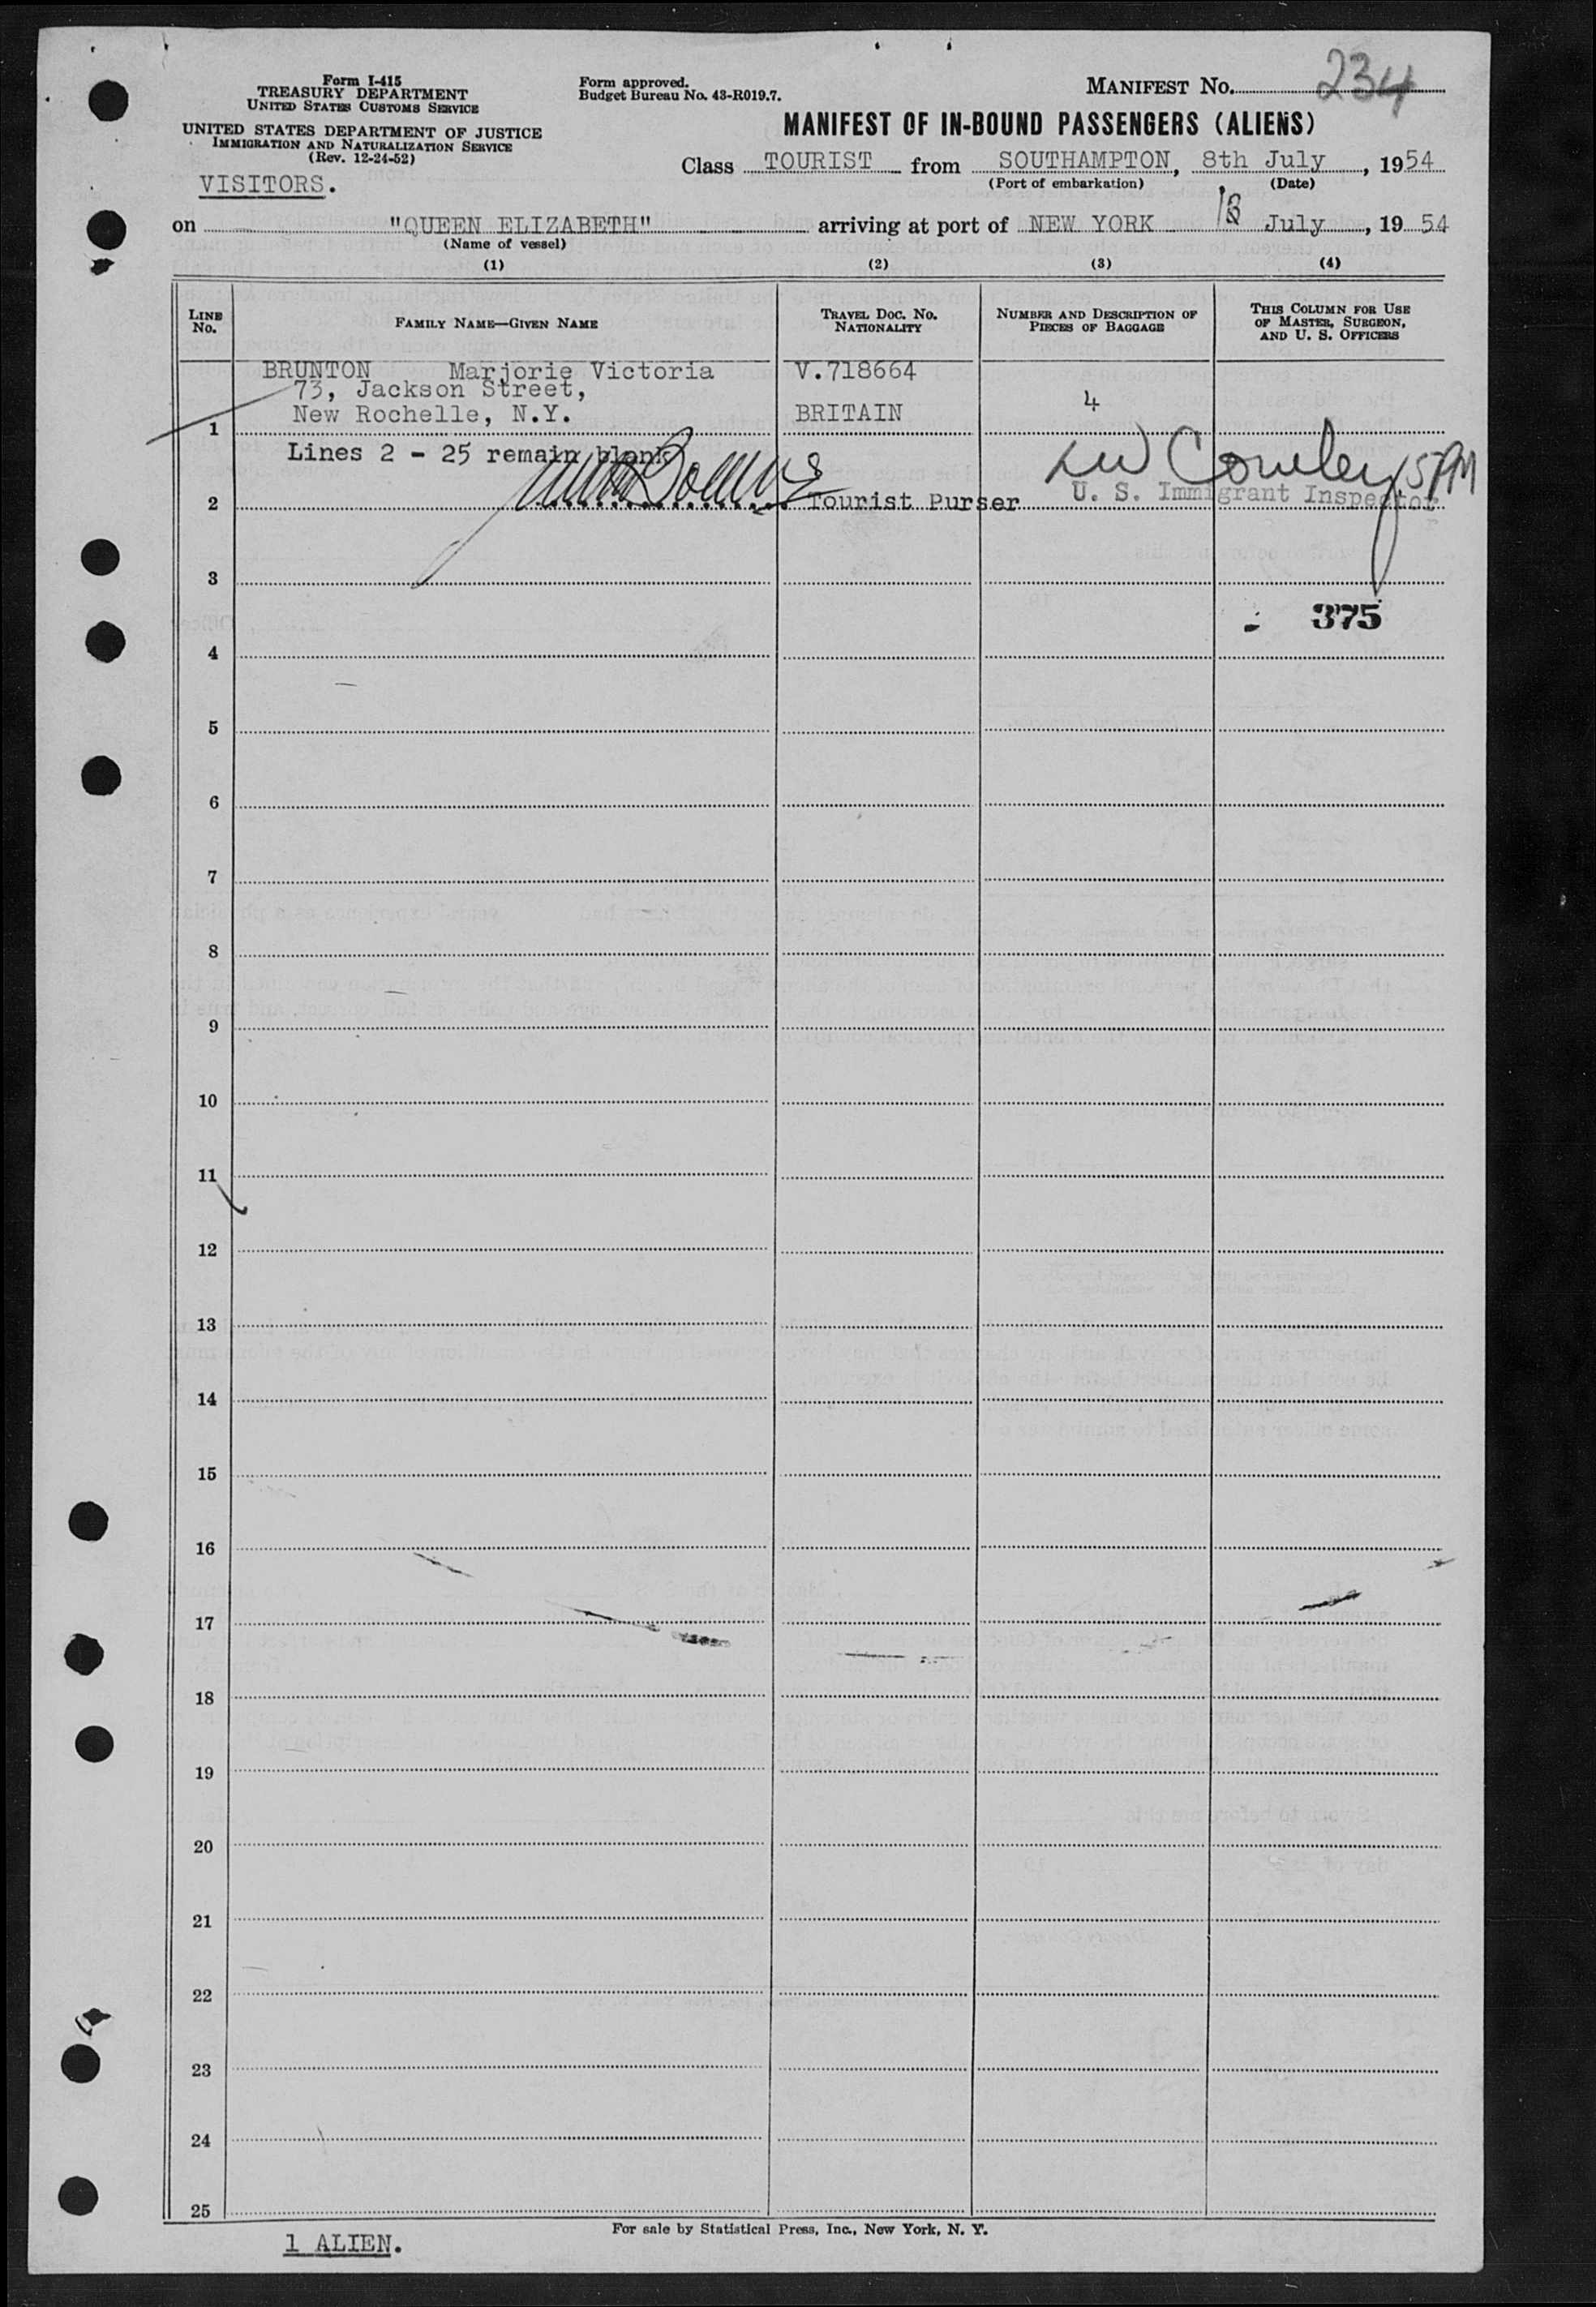 Form I-415
TREASURY DEPARTMENT
UNITED STATES CUSTOMS SERVICE
UNITED STATES DEPARTMENT OF JUSTICE
IMMIGRATION AND NATURALIZATION SERVICE
(Rev. 12-24-52)
VISITORS.
Form approved.
Budget Bureau No. 43-R019.7.
MANIFEST No. 234
MANIFEST OF IN-BOUND PASSENGERS (ALIENS)
Class TOURIST from SOUTHAMPTON, 8th July, 1954
(Port of embarkation) (Date)
on "QUEEN ELIZABETH" arriving at port of NEW YORK July, 19 54
(Name of vessel)
(1) (2) (3) (4)
LINE No. FAMILY NAME—GIVEN NAME TRAVEL DOC. No. NATIONALITY NUMBER AND DESCRIPTION OF PIECES OF BAGGAGE THIS COLUMN FOR USE OF MASTER, SURGEON, AND U. S. OFFICERS
BRUNTON Marjorie Victoria V.718664
73, Jackson Street,
New Rochelle, N.Y. BRITAIN 4
1
Lines 2 - 25 remain blank
Cowley
2 Tourist Purser U. S. Immigrant Inspector
3
375
4
5
6
7
8
9
10
11
12
13
14
15
16
17
18
19
20
21
22
23
24
25
For sale by Statistical Press, Inc., New York, N. Y.
1 ALIEN.